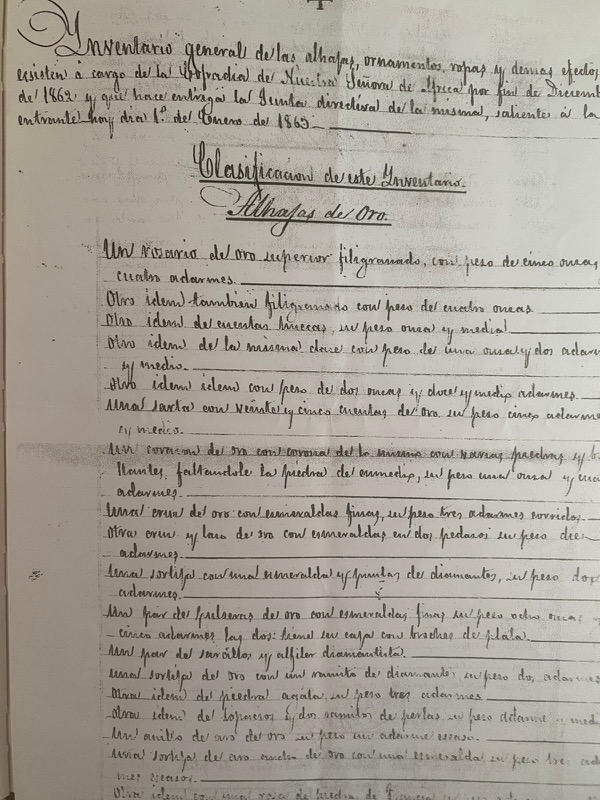 Ynventario general de las alhajas, ornamentos, ropas y demas efectos
ecsisten à cargo de la Cofradia de Nuestra Señora de Africa por fin de Diciemb
de 1862 y que hace entrega la Junta directiva de la misma, saliente á la
entrante hoy dia 1º de Enero de 1863.
Clasificacion de este Ynventario.
Alhajas de Oro.
Un rosario de oro superior filigranado, con peso de cinco onzas
cuatro adarmes.
Otro idem tambien filigranado con peso de cuatro onzas
Otro idem de cuentas huecas, su peso onza y media
Otro idem de la misma clase con peso de una onza y dos adar
y medio.
Otro idem idem con peso de dos onzas y doce y medio adarmes.
Una sarta con veinte y cinco cuentas de oro su peso cinco adarme
y medio.
Un corazon de oro con corona de lo mismo con varias piedras y b
llantes, faltandole la piedra de enmedio, su peso una onza y
adarmes.
Una cruz de oro con esmeraldas finas, su peso tres adarmes corridos.
Otra cruz y lazo de oro con esmeraldas en dos pedazos su peso die
adarmes.
Una sortija con una esmeralda y puntas de diamantes, su peso dos
adarmes.
Un par de pulseras de oro con esmeraldas finas su peso ocho onzas y
cinco adarmes las dos: tiene su caja con broches de plata.
Un par de sarcillos y alfiler
Una sortija de oro con un ramito de diamantes su peso dos adarmes
Otra idem de piedra agata su peso tres adarmes
Otra idem de y dos ramitos de perlas, su peso adarme y medi
Un anillo de aro de oro su peso un adarme escaso.
Una sortija de aro ancho de oro con una esmeralda su peso tres ada
mes escasos.
Otra idem con una rosa de piedra de Francia